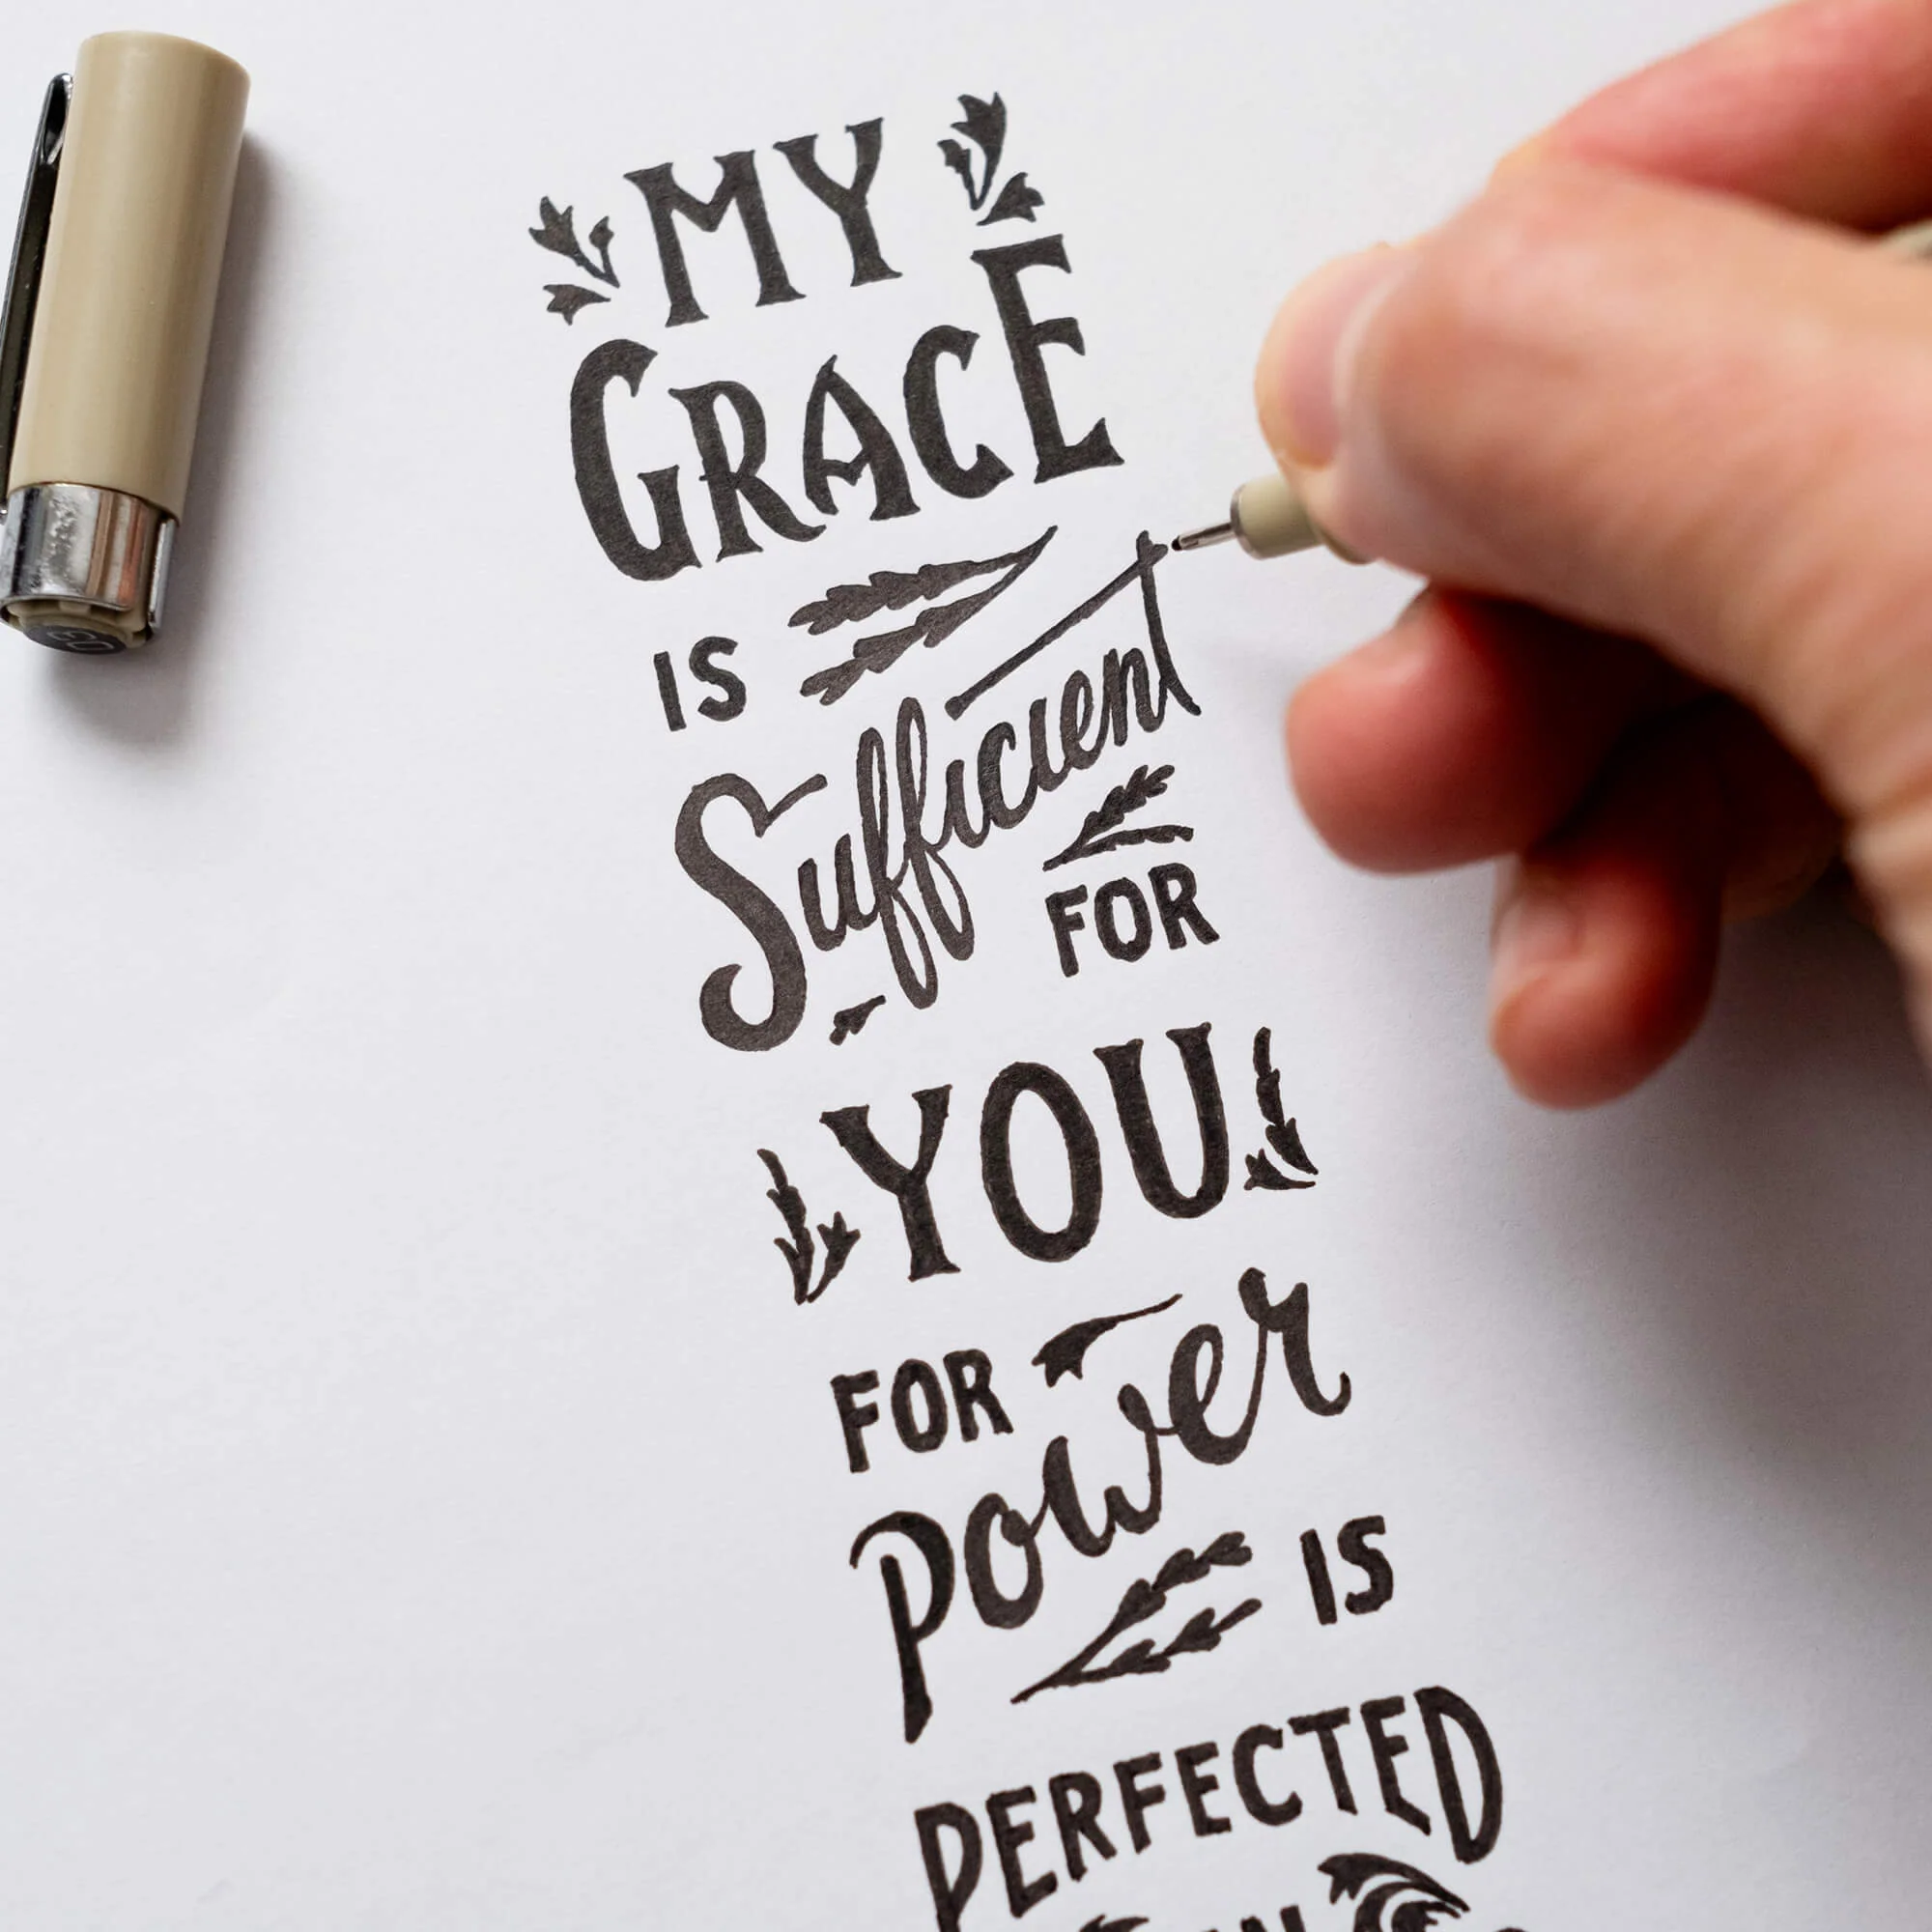 MY
GRACE
IS
Sufficient
FOR
YOU
FOR
power
IS
PERFECTED
IN
03